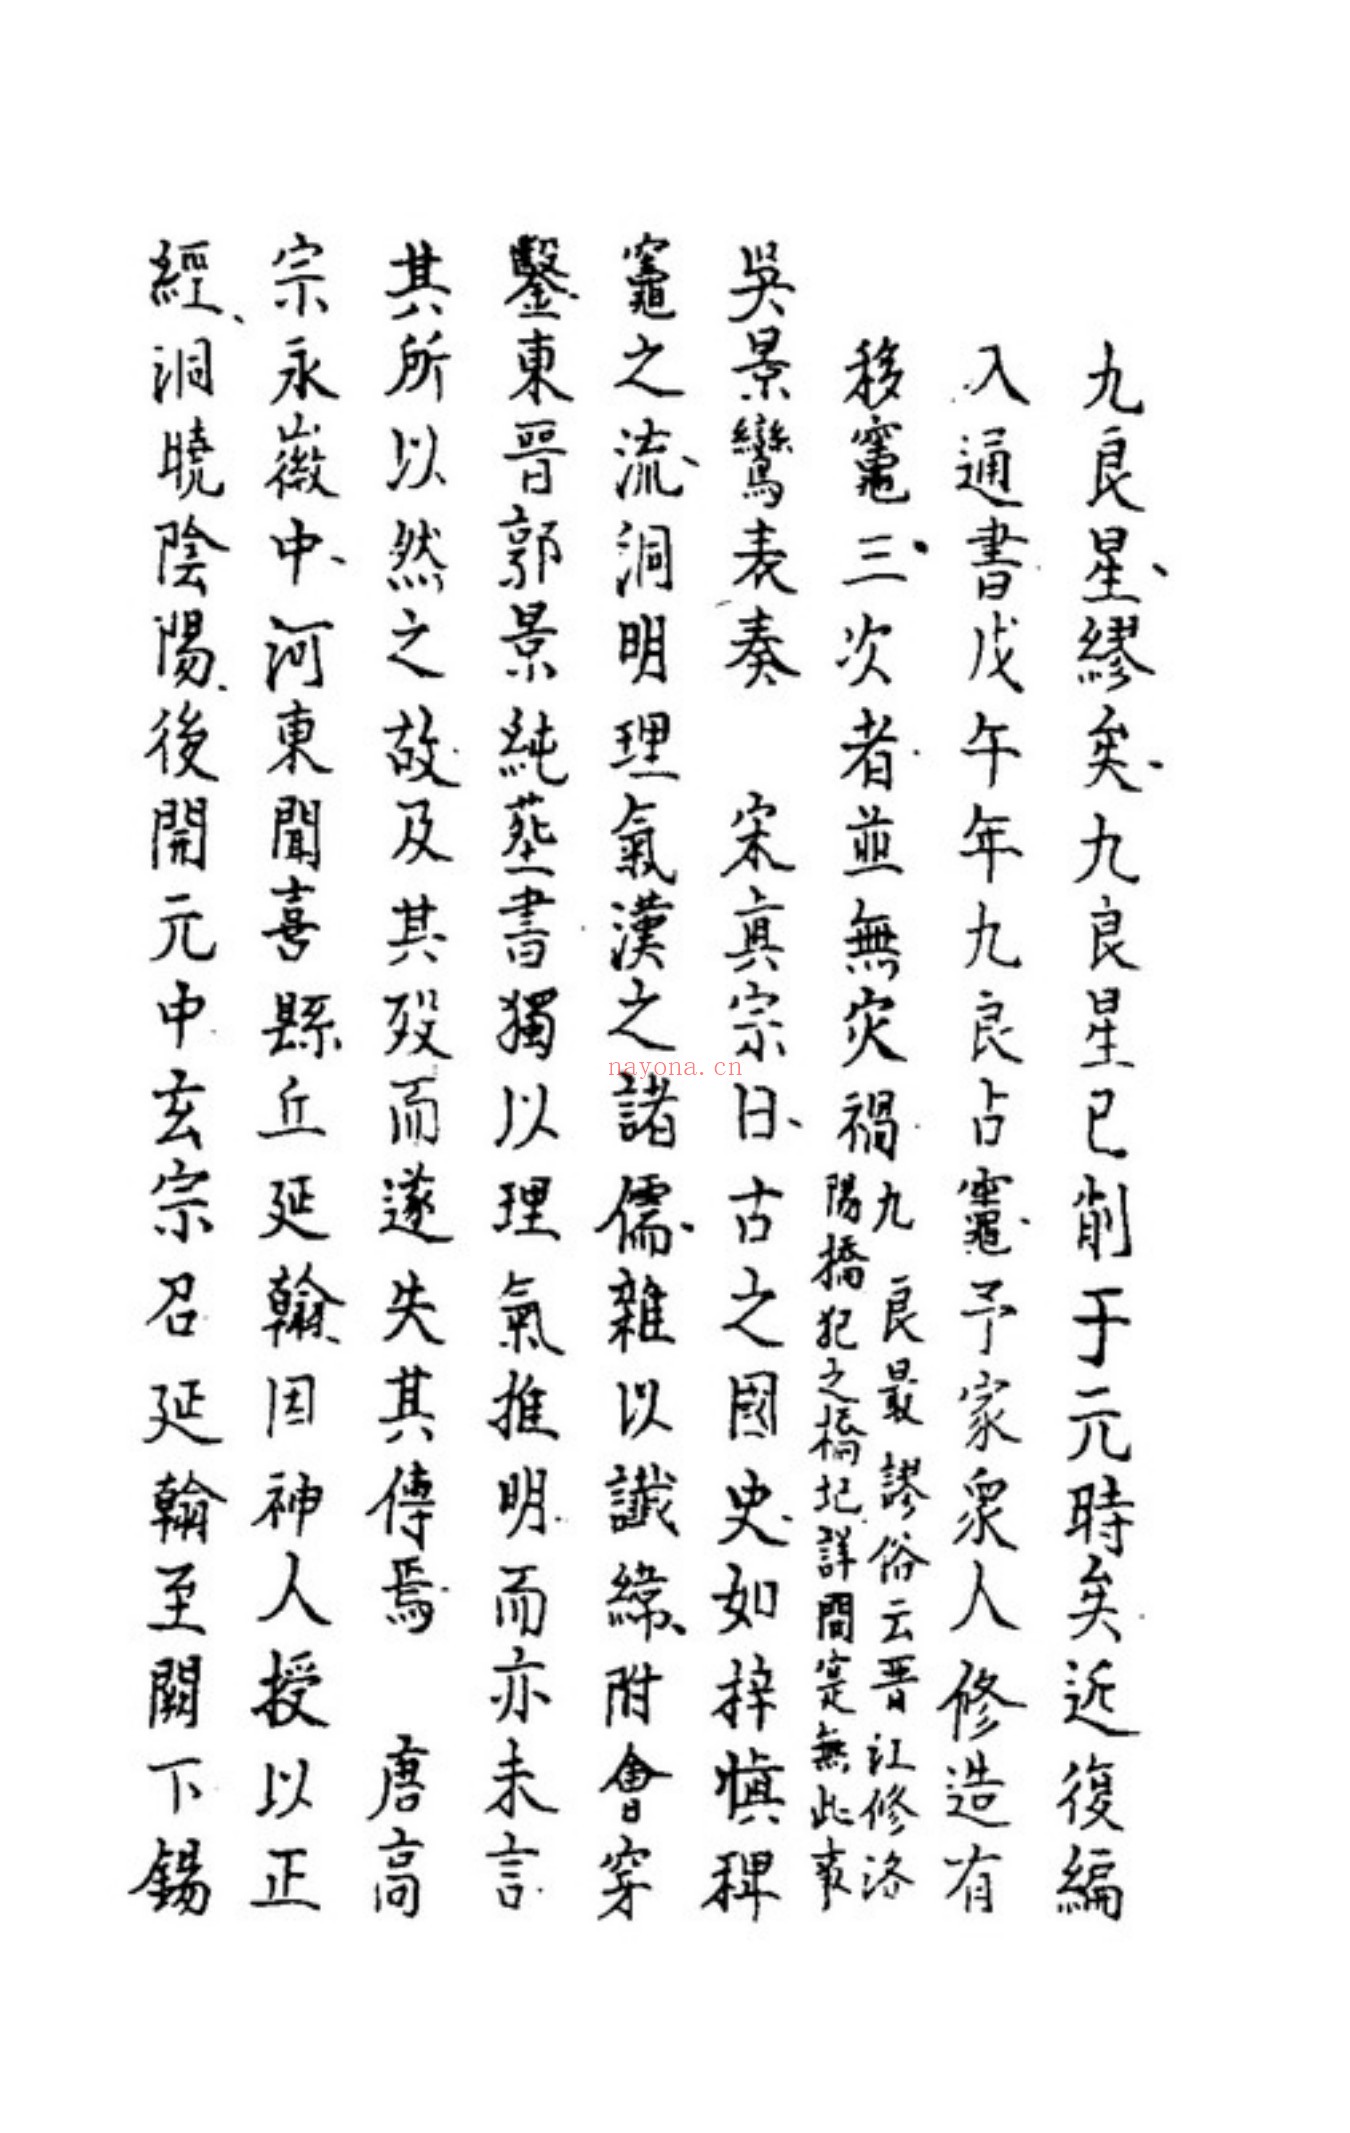 九良星繆矣九良星已削于元時矣近復編
入通書戊午年九良占竈予家衆人修造有
移竈三次者並無灾禍
九良最謬俗云晋江修洛
陽橋犯之橋圮詳閱寔無此事
吳景鸞表奏　宋真宗日古之國史如梓慎稗
竈之流洞明理氣漢之諸儒雜以讖緯附會穿
鑿東晋郭景純塟書獨以理氣推明而亦未言
其所以然之故及其歿而遂失其傳焉　唐高
宗永徽中河東聞喜縣丘延翰因神人授以正
經洞曉陰陽後開元中玄宗召延翰至闕下錫
nayona.cn